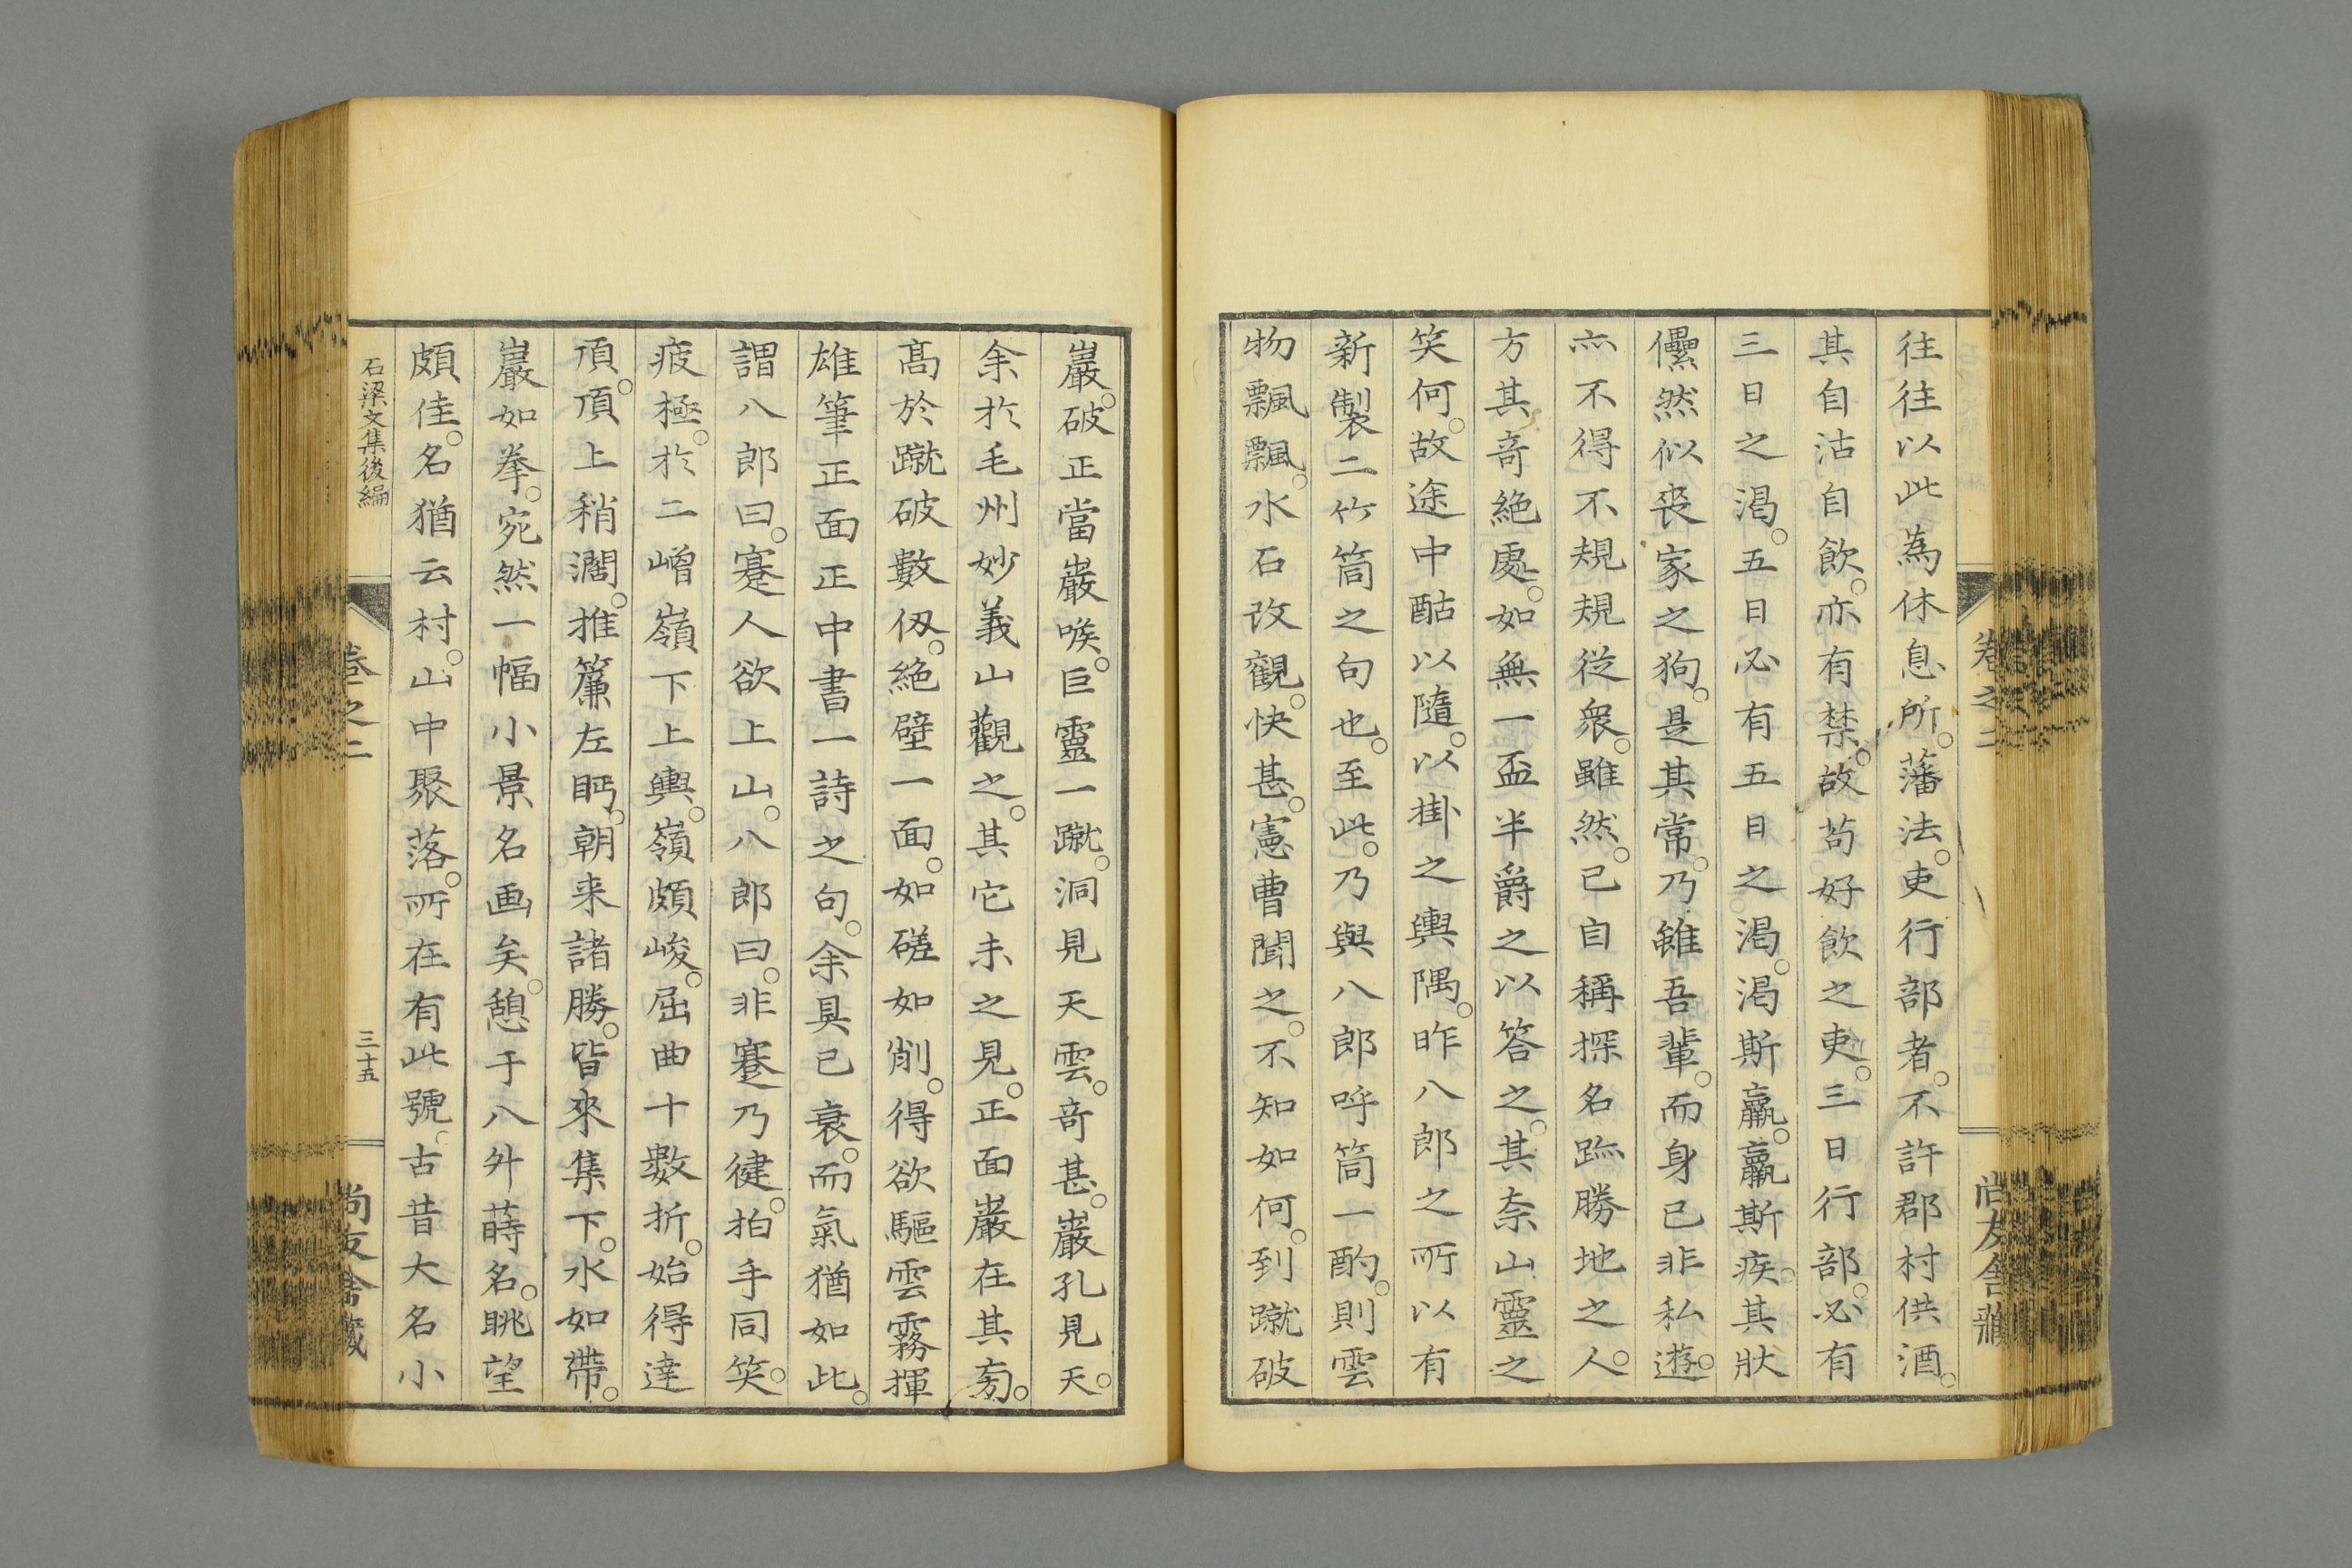 往往以此為休息所。藩法。吏行部者。不許郡村供酒。
其自沽自飲。亦有禁。故苟好飲之吏。三日行部。必有
三日之渇。五日必有五日之渇。渇斯羸。羸斯疾。其狀
儽然似喪家之狗。是其常。乃雖吾輩。而身已非私遊。
亦不得不規規從衆。雖然。已自稱探名跡勝地之人。
方其竒絶處。如無一盃半爵之以答之。其奈山靈之
笑何。故途中酤以隨。以掛之輿隅。昨八郎之所以有
新製二竹筒之句也。至此。乃與八郎呼筒一酌。則雲
物飄飄。水石改觀。快甚。憲曹聞之。不知如何。到蹴破
巖。破正當巖喉。巨靈一蹴。洞見天雲。竒甚。巖孔見天。
余於毛州妙義山觀之。其它未之見。正面巖在其㫄。
髙於蹴破數仭。絶壁一面。如磋如削。得欲驅雲霧揮
雄筆正面正中書一詩之句。余具已衰。而氣猶如此。
謂八郎曰。蹇人欲上山。八郎曰。非蹇乃健。拍手同笑。
疲極。於二嶒嶺下上輿。嶺頗峻。屈曲十數折。始得達
頂。頂上稍濶。推簾左眄。朝来諸勝。皆來集下。水如帶。
巖如拳。宛然一幅小景名画矣。憩于八舛蒔名。眺望
頗佳。名猶云村。山中聚落。所在有此號。古昔大名小
石梁文集後編
卷之二
三十五
尚友舎藏